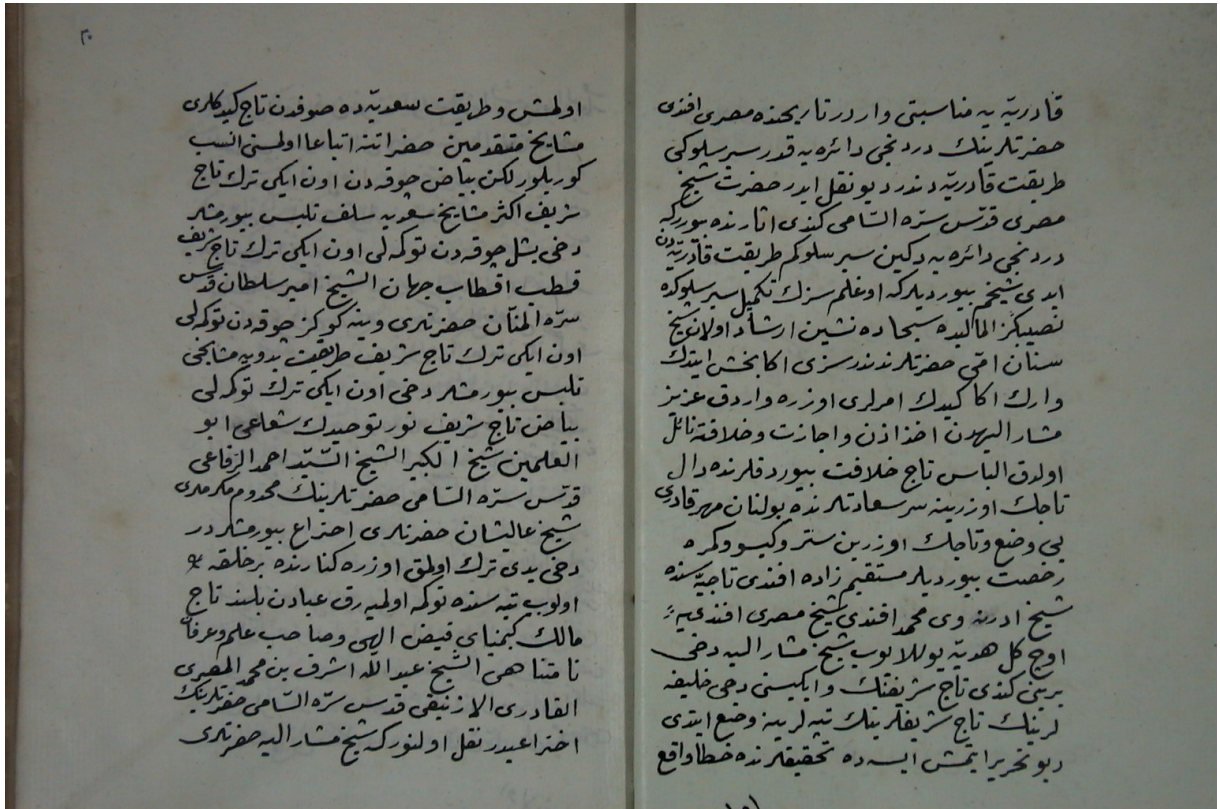 قادریّه یه مناسبتی واردر تاریخنده مصری افندی
حضرتلرینك دردنجی دائره یه قدر سیر سلوکی
طریقت قادریّه دندر دیو نقل ایدر حضرت شیخ
مصری قدّس سرّه السّامی کندی اثارنده بیوررکه
دردنجی دائره یه دکین سیر سلوکم طریقت قادریّه دن
ایدی شیخم بیوردیلرکه اوغلم سزك تکمیل سیر سلوکده
نصیبکز المالیده سجاده نشین ارشاد اولان شیخ
سنان امّی حضرتلرندندر سزی اکا بخش ایتدك
وارك اکا کیدك امرلری اوزره واردق عزیز
مشار الیهدن اخذ اذن و اجازت و خلافته نائل
اولدق الباس تاج خلافت بیوردقلرنده دال
تاجك اوزرینه سر سعادتلرنده بولنان مهر قادری
یی وضع و تاجك اوزرین ستر و کیسوکره
رخصت بیوردیلر مستقیم زاده افندی تاجیّه سنده
شیخ ادرنه وی محمد افندی شیخ مصری افندی یه
اوج کل هدیّه یوللایوب شیخ مشار الیه دخی
برینی کندی تاج شریفنك و ایکیسنی دخی خلیفه
لرینك تاج شریفلرینك تپه لرینه وضع ایتدی
دیو تحریر ایتمش ایسه ده تحقیقلرنده خطا واقع
٢٠
اولمش و طریقت سعدیّه ده صوفدن تاج کیدکلری
مشایخ متقدمین حضراتنه اتباعا اولمسی انسب
کوریلور لکن بیاض چوقه دن اون ایکی ترك تاج
شریف اکثر مشایخ سعدیه سلف تلبس بیورمشلر
دخی یشل چوقه دن توکمه لی اون ایکی ترك تاج شریف
قطب اقطاب جهان الشیخ امیر سلطان قدّس
سرّه المنّان حضرتلری وینه کوکز چوقه دن توکمه لی
اون ایکی ترك تاج شریف طریقت بدویه مشایخی
تلبس بیورمشلر دخی اون ایکی ترك توکمه لی
بیاض تاج شریف نور توحیدك شعاعی ابو
العلمین شیخ الکبیر الشیخ السّیّد احمد الرّفاعی
قدّس سرّه السّامی حضرتلرینك مخدوم مکرملری
شیخ عالیشان حضرتلری اختراع بیورمشلردر
دخی یدی ترك اولمق اوزره کنارنده بر خلقه
اولوب تپه سنده توکمه اولمیه رق عبادن بلند تاج
مالك کیمیای فیض الهی و صاحب علم و عرفان
نامتناهی الشیخ عبد الله اشرف بن محمد المصری
القادری الازنیقی قدس سرّه السّامی حضرتلرینك
اختراعیدر نقل اولنورکه شیخ مشار الیه حضرتلری